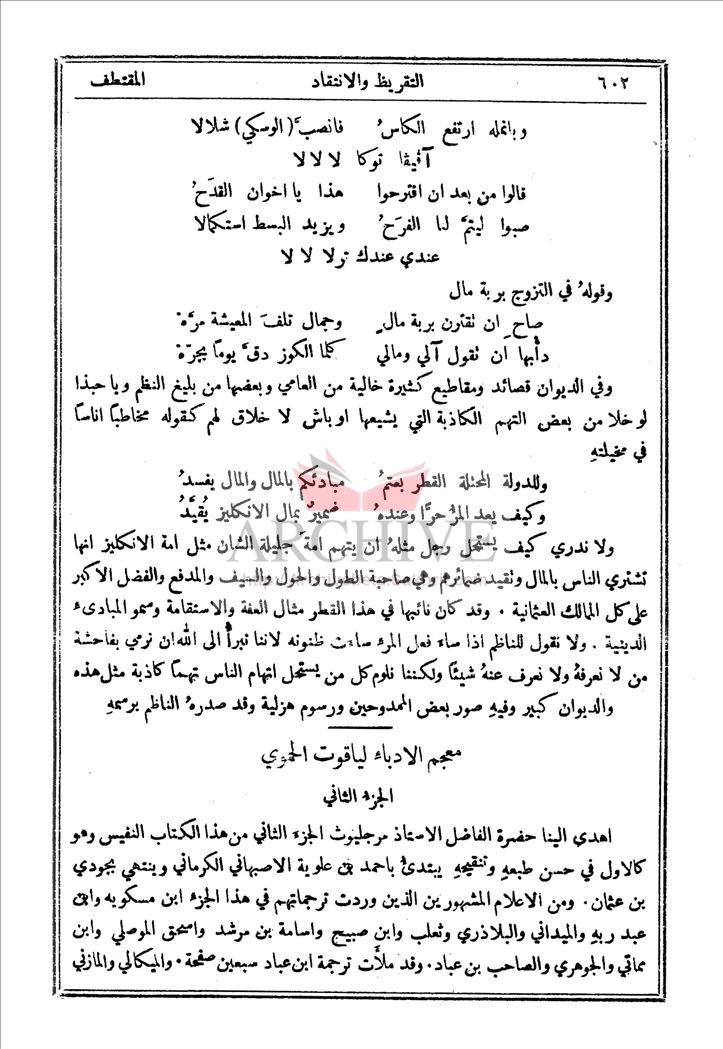 ٦٠٢ التقريظ والانتقاد المقتطف
وبانمله ارتفع الكاسُ فانصبَّ (الوسكي) شلالا
آڤيڤا توكا لا لا لا
قالوا من بعد ان اقترحوا هذا يا اخوان القدَحُ
صبوا ليتمَّ لنا الفرَحُ ويزيد البسط استكمالا
عندي عندك ترلا لا لا
وقولهُ في التزوج بربة مال
صاحِ ان تقترن بربة مالٍ وجمال تلفَ المعيشة مرَّة
دأْبها ان تقول آلي ومالي كلما الكوز دقَّ يوماً بجرَّة
وفي الديوان قصائد ومقاطيع كثيرة خالية من العامي وبعضها من بليغ النظم ويا حبذا
لو خلا من بعض التهم الكاذبة التي يشيعها اوباش لا خلاق لهم كقوله مخاطباً اناساً
في مخيلتهِ
وللدولة المحتلة القطر بعتمُ مبادئكم بالمال والمال يفسدُ
وكيف يعد المرُّ حرًّا وعندهُ ضميرٌ بمال الانكليز يُقيَّدُ
ولا ندري كيف يستحل رجل مثلهُ ان يتهم امة جليلة الشان مثل امة الانكليز انها
تشتري الناس بالمال وتقيد ضمائرهم وهي صاحبة الطول والحول والسيف والمدفع والفضل الاكبر
على كل الممالك العثمانية . وقد كان نائبها في هذا القطر مثال العفة والاستقامة وسمو المبادىء
الدينية . ولا نقول للناظم اذا ساء فعل المرء ساءت ظنونه لاننا نبرأ الى الله ان نرمي بفاحشة
من لا نعرفهُ ولا نعرف عنهُ شيئاً ولكننا نلوم كل من يستحل اتهام الناس تهماً كاذبة مثل هذه
والديوان كبير وفيهِ صور بعض الممدوحين ورسوم هزلية وقد صدرهُ الناظم برسمهِ
معجم الادباء لياقوت الحموي
الجزء الثاني
اهدى الينا حضرة الفاضل الاستاذ مرجليوث الجزء الثاني من هذا الكتاب النفيس وهو
كالاول في حسن طبعهِ وتنقيحهِ يبتدئ باحمد بن علوية الاصبهاني الكرماني وينتهي بجودي
بن عثمان . ومن الاعلام المشهورين الذين وردت ترجماتهم في هذا الجزء ابن مسكويه وابن
عبد ربهِ والميداني والبلاذري وثعلب وابن صبيح واسامة بن مرشد واسحق الموصلي وابن
مماتي والجوهري والصاحب بن عباد . وقد ملأَت ترجمة ابن عباد سبعين صفحة . والميكالي والمازني
ARCHIVE